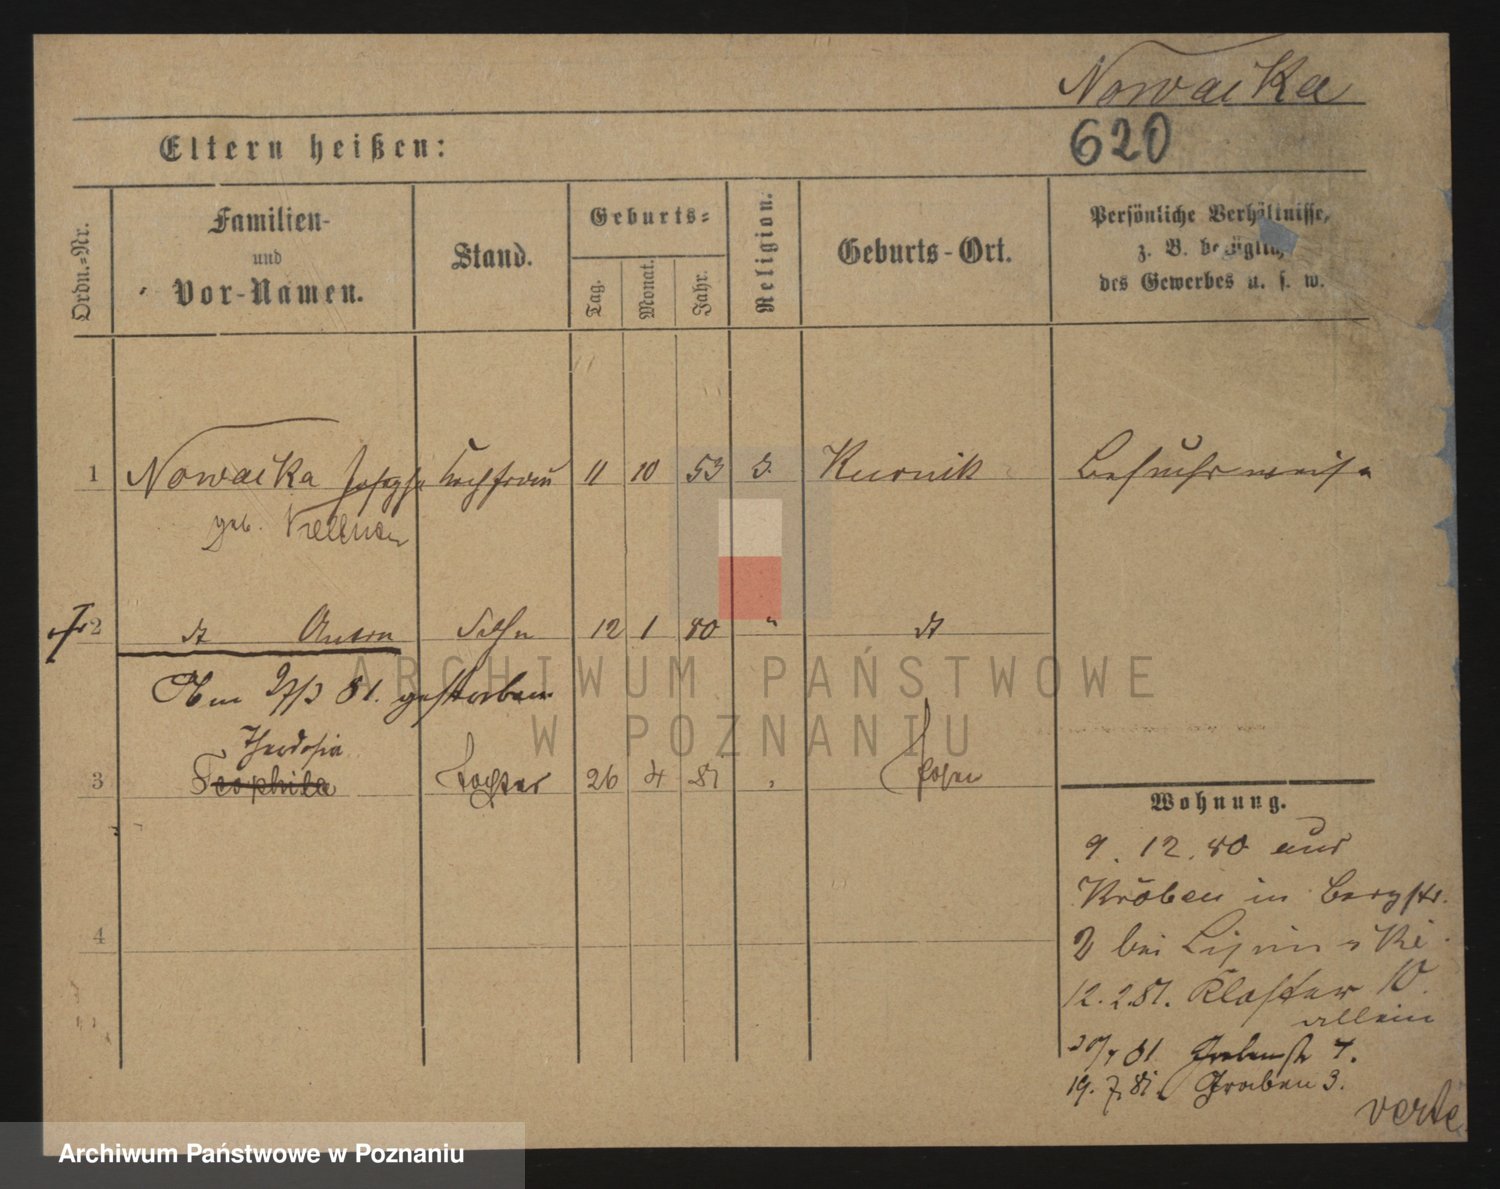 Nowacka
620
Eltern heißen:
Ordn.-Nr.
Familien-
und
Vor-Namen.
Stand.
Geburts-
Tag.
Monat.
Jahr.
Religion.
Geburts-Ort.
Persönliche Verhältnisse,
z. B. bezüglich
des Gewerbes u. s. w.
1 Nowacka Josepha 11 10 53 Kurnik Besuchsweise
geb.
2 dt Anton Sohn 12 1 80 " dt
Am 27/3 81. gestorben
Theodosia
3 Teophila Tochter 26 4 81 " Posen
4
Wohnung.
9. 12. 80 aus
Kröben in Bergstr.
2 bei
12. 2. 81. Kloster 10.
allein
81 Grabenstr 4.
19. 7. 81. Graben 3.
verte
ARCHIWUM PAŃSTWOWE
W POZNANIU
Archiwum Państwowe w Poznaniu